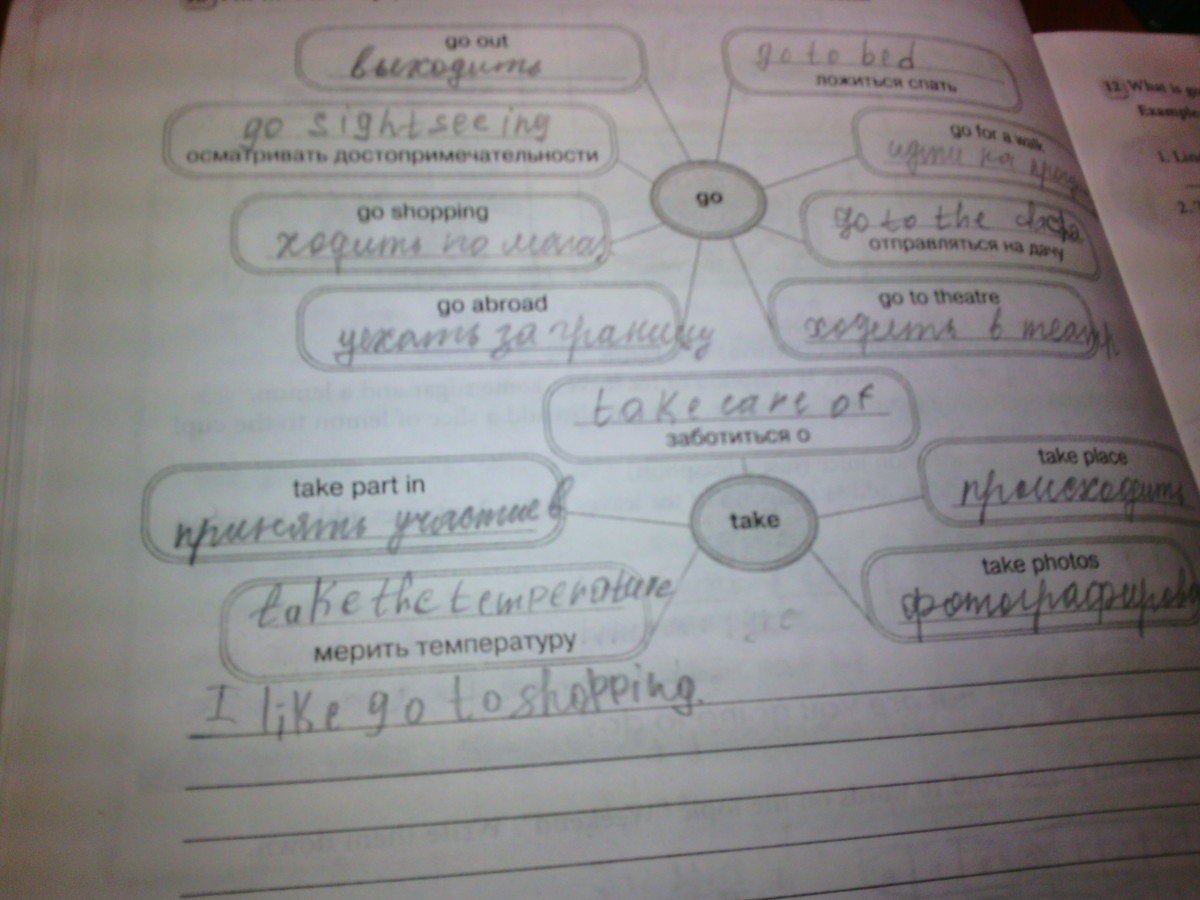 go out
выходить
go to bed
ложиться спать
go sightseeing
осматривать достопримечательности
go for a walk
идти на
go
go shopping
ходить по магаз
go to the
отправляться на дачу
go abroad
уехать за границу
go to theatre
ходить в театр
take care of
заботиться о
take part in
принять участие в
take
take place
происходить
take the temperature
мерить температуру
take photos
I like go to shopping.
12 What is
Example
1. Lin
2.